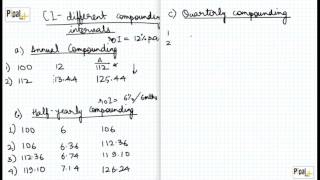 Pipal
CI - different compounding
intervals
roI = 12% p.a.
a) Annual Compounding
A
1) 100 12 112
2) 112 13.44 125.44
roI = 6% / 6mths
b) Half-yearly compounding
1) 100 6 106
2) 106 6.36 112.36
3) 112.36 6.74 119.10
4) 119.10 7.14 126.24
c) Quarterly compounding
1
2
Pipal
Pipal